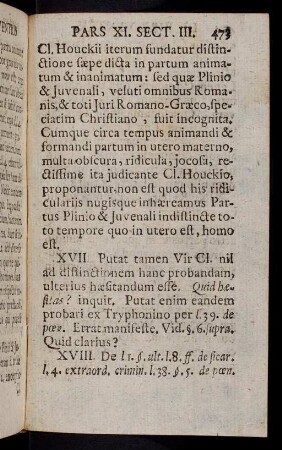 PARS XI. SECT. III. 473
Cl. Houckii iterum fundatur distin-
ctione sæpe dicta in partum anima-
tum & inanimatum: sed quæ Plinio
& Juvenali, veluti omnibus Roma-
nis, & toti Juri Romano-Græco, spe-
ciatim Christiano, fuit incognita.
Cumque circa tempus animandi &
formandi partum in utero materno,
multa obscura, ridicula, jocosa, re-
ctissime ita judicante Cl. Houckio,
proponantur. non est quod his ridi-
culariis nugisque inhæreamus Par-
tus Plinio & Juvenali indistincte to-
to tempore quo in utero est, homo
est.
XVII. Putat tamen Vir Cl. nil
ad distinctionem hanc probandam,
ulterius hæsitandum esse. Quid hæ-
sitas? inquit. Putat enim eandem
probari ex Tryphonino per l. 39. de
pœn. Errat manifeste, Vid. §. 6. supra.
Quid clarius?
XVIII. De l 1. §. ult. l. 8. ff. de sicar.
l. 4. extraord. crimin. l. 38. §. 5. de pœn.